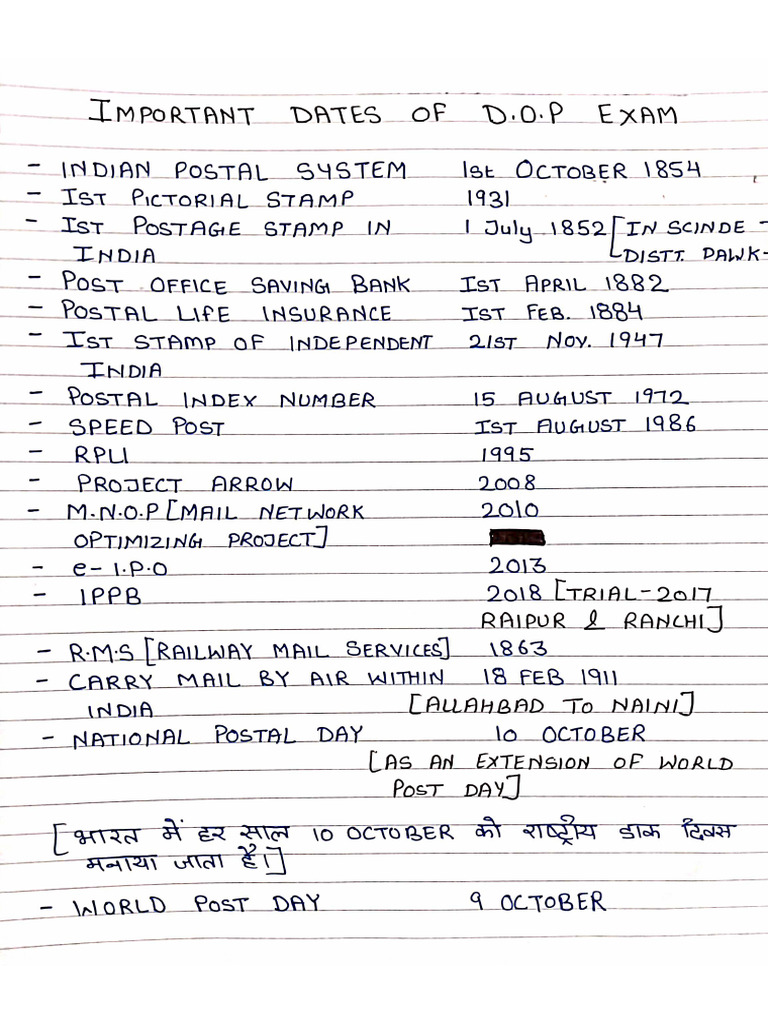 IMPORTANT DATES OF D.O.P EXAM
- INDIAN POSTAL SYSTEM 1st OCTOBER 1854
- Ist PICTORIAL STAMP 1931
- Ist POSTAGE STAMP IN 1 July 1852 [IN SCINDE -
INDIA DISTT. DAWK-
- POST OFFICE SAVING BANK Ist APRIL 1882
- POSTAL LIFE INSURANCE Ist FEB. 1884
- Ist STAMP OF INDEPENDENT 21ST NOV. 1947
INDIA
- POSTAL INDEX NUMBER 15 AUGUST 1972
- SPEED POST Ist AUGUST 1986
- RPLI 1995
- PROJECT ARROW 2008
- M.N.O.P [MAIL NETWORK 2010
OPTIMIZING PROJECT]
- e-I.P.O 2013
- IPPB 2018 [TRIAL-2017
RAIPUR & RANCHI]
- R.M.S [RAILWAY MAIL SERVICES] 1863
- CARRY MAIL BY AIR WITHIN 18 FEB 1911
INDIA [ALLAHBAD TO NAINI]
- NATIONAL POSTAL DAY 10 OCTOBER
[AS AN EXTENSION OF WORLD
POST DAY]
[भारत में हर साल 10 OCTOBER को राष्ट्रीय डाक दिवस
मनाया जाता है।]
- WORLD POST DAY 9 OCTOBER